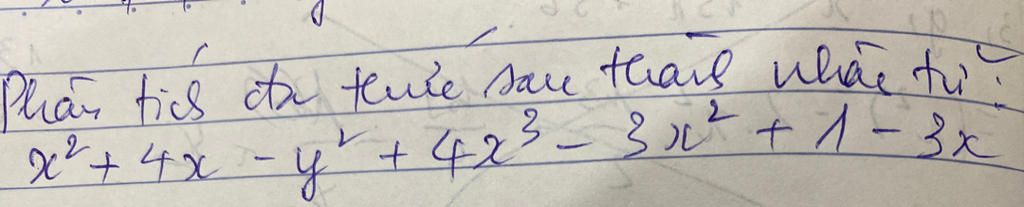 Phân tích đa thức sau thành nhân tử:
x² + 4x - y² + 4x³ - 3x² + 1 - 3x